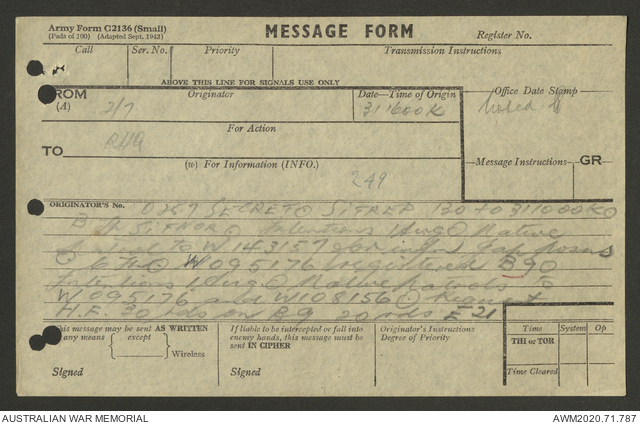 Army Form C2136 (Small)
(Pads of 100) (Adapted Sept. 1943)
MESSAGE FORM
Register No.
Call
Ser. No.
Priority
Transmission Instructions
ABOVE THIS LINE FOR SIGNALS USE ONLY
FROM
(A)
Originator
Date—Time of Origin
Office Date Stamp
2/7
311600K
Noted
For Action
TO
RHQ
(w) For Information (INFO.)
Message Instructions
GR
249
ORIGINATOR'S No.
0267 SECRET SITREP 130 to 311600K
SITNOR Intentions 1 Aug Native
Patrol to W 143157
W 095176 registered B90
Intentions 1 Aug Native Patrols to
W 095176 and W108156 Request
H.F. 30 rds on B9 20 rds E 21
This message may be sent AS WRITTEN
by any means except
Wireless
Signed
If liable to be intercepted or fall into
enemy hands, this message must be
sent IN CIPHER
Signed
Originator's Instructions
Degree of Priority
Time
System
Op
THI or TOR
Time Cleared
AUSTRALIAN WAR MEMORIAL
AWM2020.71.787